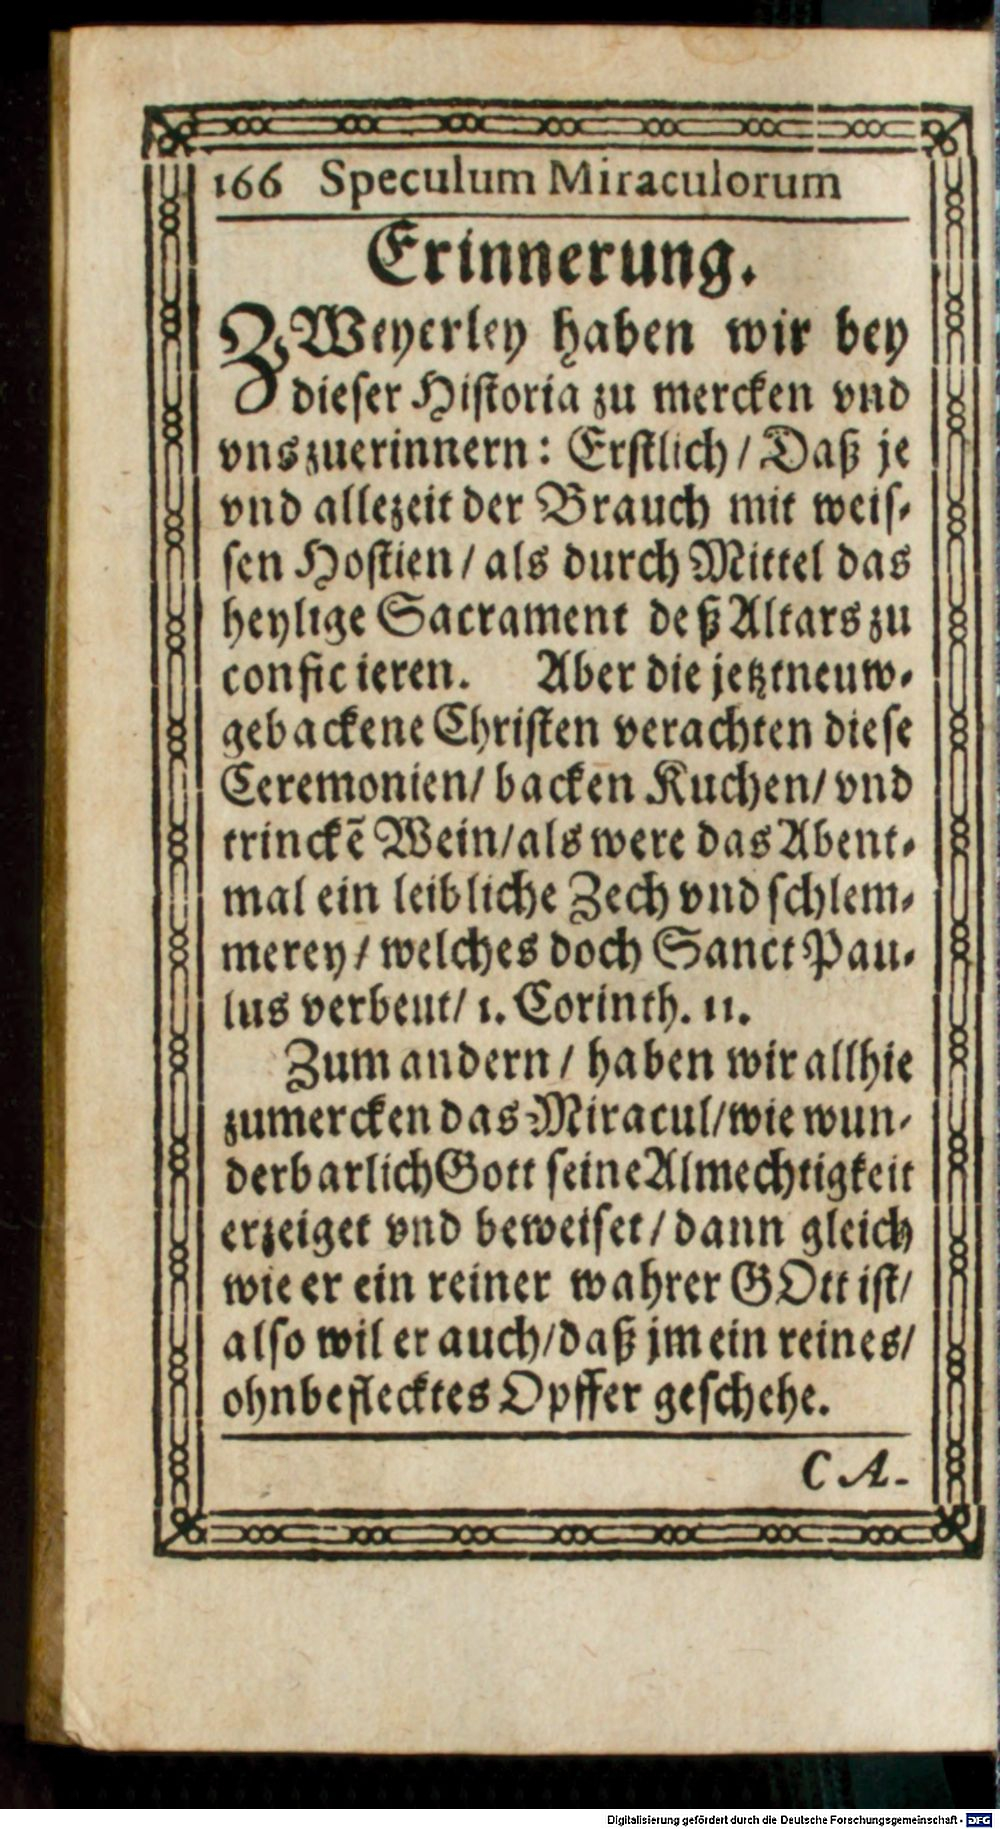 166 Speculum Miraculorum
Erinnerung.
ZWeyerley haben wir bey
dieser Historia zu mercken vnd
vns zuerinnern: Erstlich/ Daß je
vnd allezeit der Brauch mit weis-
sen Hostien/ als durch Mittel das
heylige Sacrament deß Altars zu
conficieren. Aber die jetztneuw-
gebackene Christen verachten diese
Ceremonien/ backen Kuchen/ vnd
trinckẽ Wein/als were das Abent-
mal ein leibliche Zech vnd schlem-
merey/ welches doch Sanct Pau-
lus verbeut/ 1. Corinth. 11.
Zum andern/ haben wir allhie
zumercken das Miracul/wie wun-
derbarlich Gott seine Almechtigkeit
erzeiget vnd beweiset/ dann gleich
wie er ein reiner wahrer GOtt ist/
also wil er auch/daß jm ein reines/
ohnbeflecktes Opffer geschehe.
CA-
Digitalisierung gefördert durch die Deutsche Forschungsgemeinschaft - DFG